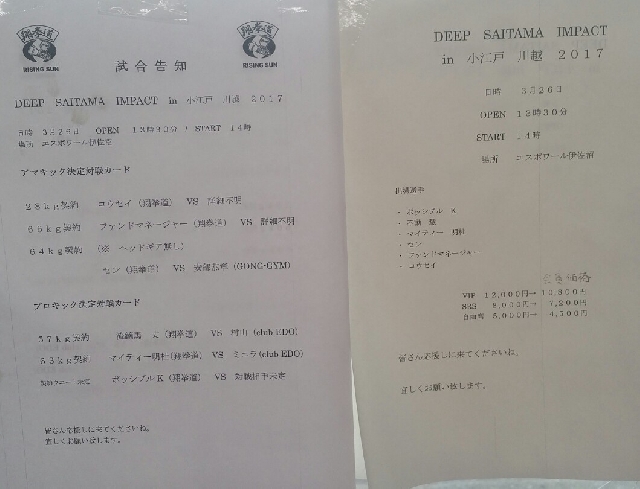 翔拳道
RISING SUN
翔拳道
RISING SUN
試合告知
DEEP SAITAMA IMPACT in 小江戸 川越 2017
日時 3月26日 OPEN 13時30分 / START 14時
場所 エスポワール伊佐沼
アマキック決定対戦カード
28kg契約 コウセイ (翔拳道) VS 詳細不明
65kg契約 ファンドマネージャー (翔拳道) VS 詳細不明
64kg契約 (※ ヘッドギア無し)
セン (翔拳道) VS (GONG-GYM)
プロキック決定対戦カード
57kg契約 (翔拳道) VS 村山 (club EDO)
53kg契約 マイティー明社 (翔拳道) VS (club EDO)
ポッシブルK (翔拳道) VS 対戦相手未定
皆さん応援しに来てくださいね。
宜しくお願い致します。
DEEP SAITAMA IMPACT
in 小江戸 川越 2017
日時 3月26日
OPEN 13時30分
START 14時
場所 エスポワール伊佐沼
出場選手
・ ポッシブル K
・ 不動
・ マイティー 明社
・ セン
・ ファンドマネージャー
・ コウセイ
VIP 12,000円→ 10,800円
SRS 8,000円→ 7,200円
自由席 5,000円→ 4,500円
皆さん応援しに来てくださいね。
宜しくお願い致します。